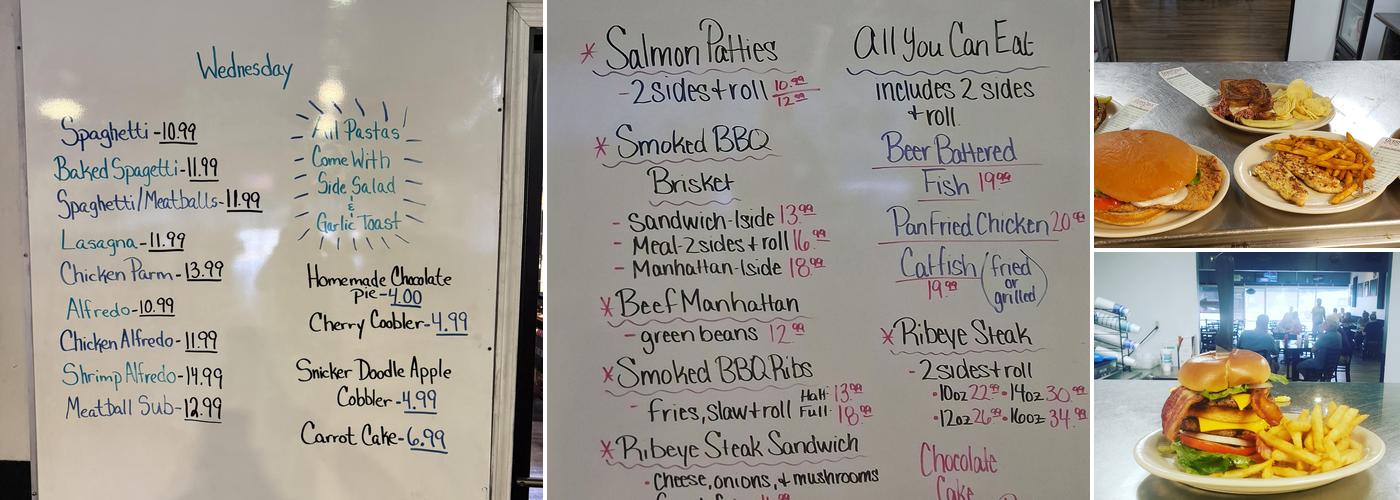 Wednesday
Spaghetti - 10.99
Baked Spagetti - 11.99
Spaghetti/Meatballs - 11.99
Lasagna - 11.99
Chicken Parm - 13.99
Alfredo - 10.99
Chicken Alfredo - 11.99
Shrimp Alfredo - 14.99
Meatball Sub - 12.99
All Pastas
Come With
Side Salad
&
Garlic Toast
Homemade Chocolate
pie - 4.00
Cherry Coobler - 4.99
Snicker Doodle Apple
Cobbler - 4.99
Carrot Cake - 6.99
* Salmon Patties
- 2 sides + roll 10.99
12.99
* Smoked BBQ
Brisket
- Sandwich - 1 side 13.99
- Meal - 2 sides + roll 16.99
- Manhattan - 1 side 18.99
* Beef Manhattan
- green beans 12.99
* Smoked BBQ Ribs
- fries, slaw + roll Half - 13.99
Full - 18.99
* Ribeye Steak Sandwich
• Cheese, onions, & mushrooms
All You Can Eat
includes 2 sides
+ roll.
Beer Battered
Fish 19.99
Pan Fried Chicken 20.99
Catfish (fried
or
grilled)
19.99
* Ribeye Steak
- 2 sides + roll
• 10oz 22.99 • 14oz 30.99
• 12oz 26.99 • 16oz 34.99
Chocolate
Cake